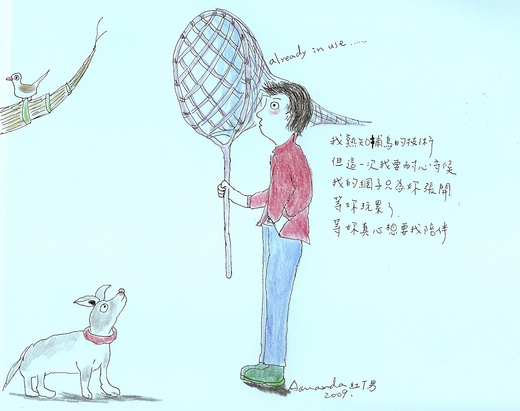 already in use......
我熟知捕鳥的技術
但這一次我要耐心等侯
我的網子只為妳張開
等妳玩累了
等妳真心想要我陪伴
Amanda 紅T男
2009.